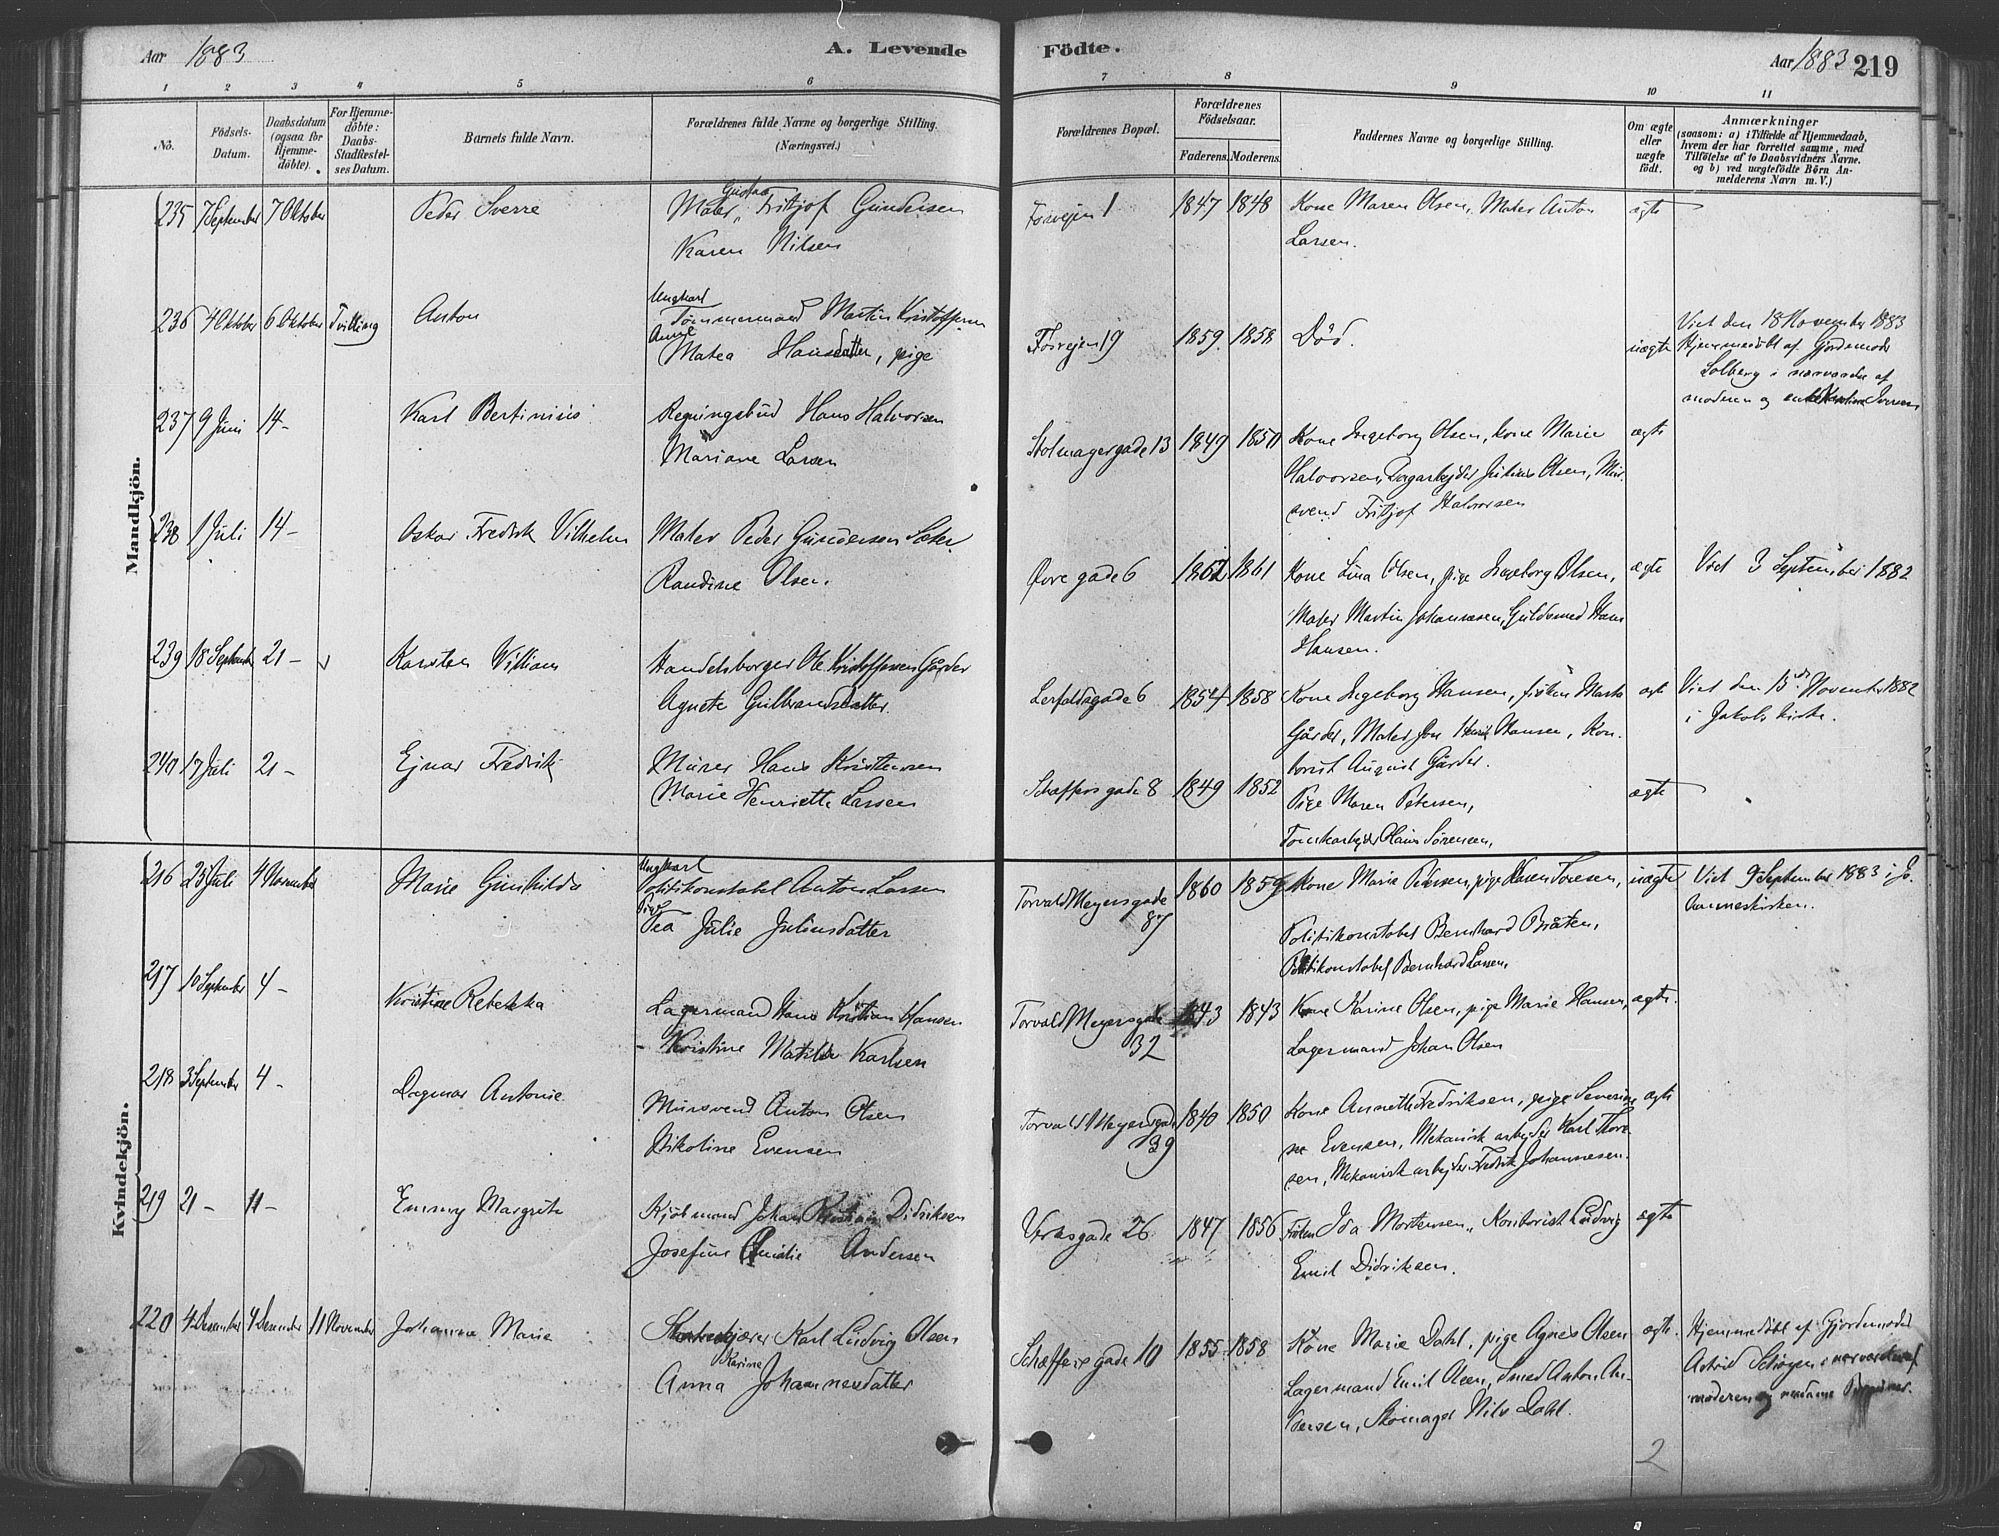 Aar 1883
A. Levende
Födte.
Aar 1883
219
1 2 3 4 5 6 7 8 9 10 11
No.
Födsels-
Datum.
Daabsdatum
(ogsaa for
Hjemme-
döbte).
For Hjemme-
döbte:
Daabs-
Stadfæstel-
ses Datum.
Barnets fulde Navn.
Forældrenes fulde Navne og borgerlige Stilling.
(Næringsvei.)
Forældrenes Bopæl.
Forældrenes
Födselsaar.
Faderens. Moderens.
Faddernes Navne og borgerlige Stilling.
Om ægte
eller
uægte
födt.
Anmærkninger
(saasom: a) i Tilfælde af Hjemmedaab,
hvem der har forrettet samme, med
Tilföielse af to Daabsvidners Navne,
og b) ved uægtefödte Börn An-
melderens Navn m. V.)
Mandkjön.
235 7 September 7 Oktober Peder Sverre
Gustav
Maler Fritjof Gundersen
Karen Nilsen
Fosvejen 1 1847 1848
Kone Maren Olsen, Maler Anton
Larsen.
ægte
236 4 Oktober 6 Oktober Tvilling Anton
Ungkarl
Tømmermand Martin Kristoffersen
Anne
Matea Hansdatter, pige
Fosvejen 19 1859. 1858 Død.
uægte
Viet den 18 November 1883
Hjemmedøbt af Gjordemoder
Solberg i nærværelse af
moderen og enke Iversen
237 9 Juni 14 - Karl Bertinius
Regningsbud Hans Halvorsen
Mariane Larsen
Stolmagergade 13 1849 1850
Kone Ingeborg Olsen, kone Marie
Halvorsen, Dagarbejder Julius Olsen, Mur-
svend Fritjof Halvorsen
ægte
238 1 Juli 14 - Oskar Fredrik Vilhelm
Maler Peder Gundersen Sæter
Randine Olsen.
Øvre gade 6 1862 1861
Kone Lina Olsen, pige Ingeborg Olsen,
Maler Martin Johannesen, Guldsmed Hans
Hansen.
ægte
Viet 3 September 1882
239 18 September 21 - Karsten William
Handelsborger Ole Kristoffersen Gårder
Agnete Gulbrandsdatter.
Lerfaldsgade 6 1854 1858
Kone Ingeborg Hansen, frøken Marte
Gårder, Maler Jon Henrik Hansen, Kon-
torist August Gårder.
ægte
Viet den 15de November 1882
i Jakobs kirke.
240 17 Juli 21 - Ejnar Fredrik
Murer Hans Kristensen
Marie Henriette Larsen
Schæffersgade 8 1849 1852
Pige Maren Petersen,
Tomtearbejder Olaus Sørensen,
ægte
Kvindekjön.
216 25 Juli 4 November Marie Gunhilda
Ungkarl
Politikonstabel Anton Larsen
Pige
Tea Julie Juliusdatter
Torvald Meyersgade
87
1860 1859
Kone Marie Petersen, pige Karen Toresen,
Politikonstabel Bernhard Bråten,
Politikonstabel Bernhard Larsen,
uægte
Viet 9 September 1883 i Jo-
hanneskirken.
217 10 September 4 - Kristine Rebekka
Lagermand Hans Kristian Hansen
Kristine Matilde Karlsen
Torvald Meyersgade
32
1843 1843
Kone Karine Olsen, pige Marie Hansen,
Lagermand Johan Olsen
ægte.
218 3 September 4 - Dagmar Antonie
Mursvend Anton Olsen
Nikoline Evensen
Torvald Meyersgade
39
1840 1850
Kone Annette Fredriksen, pige Severine
Evensen, Mekanisk arbejder Karl Thore-
sen, Mekanisk arbejder Fredrik Johannesen.
ægte
219 21 - 11 - Emmy Margrete
Kjøbmand Johan Kristian Didriksen
Josefine Amalie Andersen
Verksgade 26 1847 1856
Frøken Ida Mortensen, Kontorist Ludvig
Emil Didriksen.
ægte
220 4 Desember 4 Desember 11 November Johanna Marie
Karl Ludvig Olsen
Karine
Anna Johannesdatter
Schæffersgade 10 1855. 1858
Kone Marie Dahl, pige Agnes Olsen
Lagermand Emil Olsen, Smed Anton An-
dersen, Skomager Nils Dahl.
ægte.
Hjemmedøbt af Gjordemoder
Astrid i nærværelse af
moderen og
2